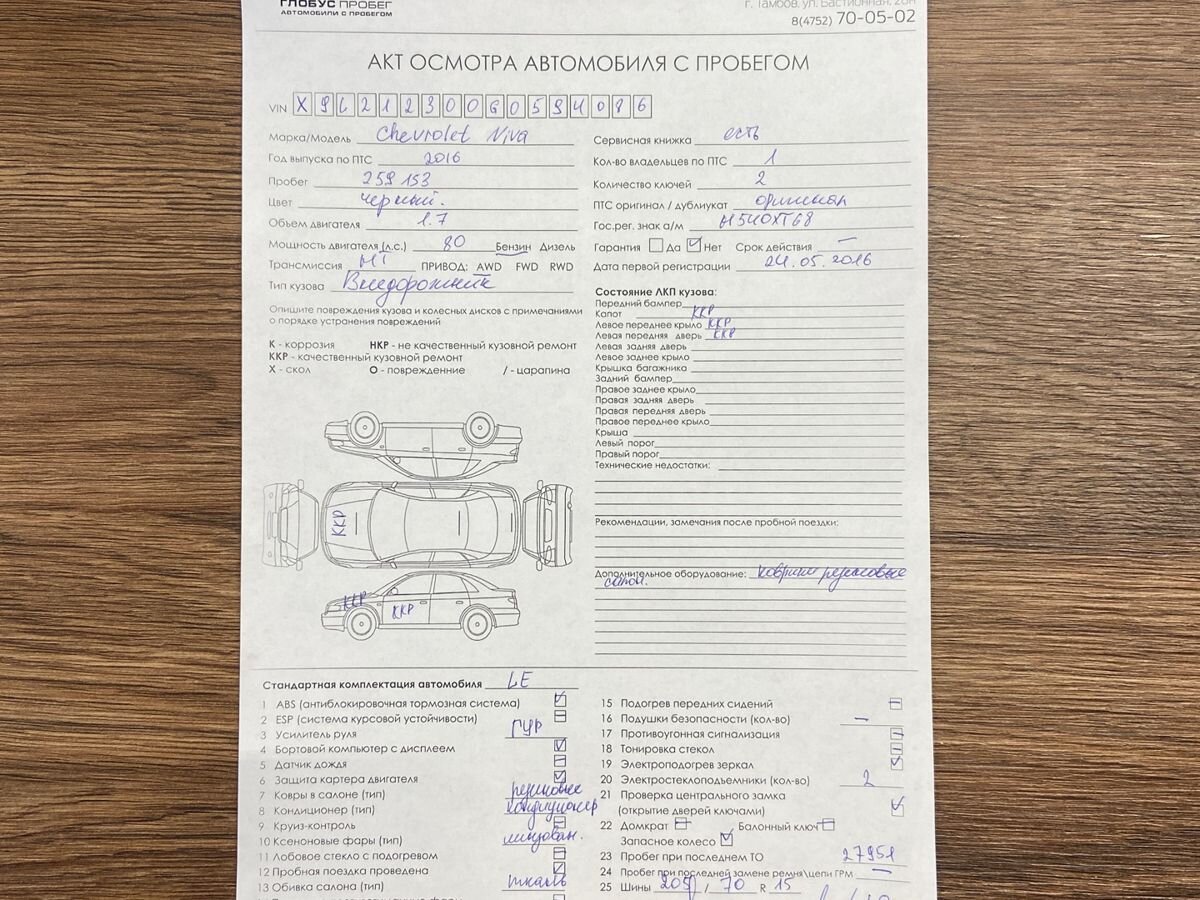 ГЛОБУС ПРОБЕГ
АВТОМОБИЛИ С ПРОБЕГОМ
г. Тамбов, ул. Бастионная,
8(4752) 70-05-02
АКТ ОСМОТРА АВТОМОБИЛЯ С ПРОБЕГОМ
VIN X9L212300G0594086
Марка/Модель Chevrolet Niva
Год выпуска по ПТС 2016
Пробег 259 153
Цвет черный.
Объем двигателя 1.7
Мощность двигателя (л.с.) 80 Бензин Дизель
Трансмиссия МТ ПРИВОД: AWD FWD RWD
Тип кузова Внедорожник
Сервисная книжка есть
Кол-во владельцев по ПТС 1
Количество ключей 2
ПТС оригинал / дубликат оригинал
Гос.рег. знак а/м Н540ХТ68
Гарантия Да Нет Срок действия —
Дата первой регистрации 24.05.2016
Опишите повреждения кузова и колесных дисков с примечаниями
о порядке устранения повреждений
К - коррозия НКР - не качественный кузовной ремонт
ККР - качественный кузовной ремонт
Х - скол О - поврежденние / - царапина
ККР
ККР
ККР
Состояние ЛКП кузова:
Передний бампер
Капот ККР
Левое переднее крыло ККР
Левая передняя дверь ККР
Левая задняя дверь
Левое заднее крыло
Крышка багажника
Задний бампер
Правое заднее крыло
Правая задняя дверь
Правая передняя дверь
Правое переднее крыло
Крыша
Левый порог
Правый порог
Технические недостатки:
Рекомендации, замечания после пробной поездки:
Дополнительное оборудование: коврики резиновые
салон.
Стандартная комплектация автомобиля LE
1 ABS (антиблокировочная тормозная система)
2 ESP (система курсовой устойчивости)
3 Усилитель руля ГУР
4 Бортовой компьютер с дисплеем
5 Датчик дождя
6 Защита картера двигателя
7 Ковры в салоне (тип) резиновые
8 Кондиционер (тип) кондиционер
9 Круиз-контроль
10 Ксеноновые фары (тип) линзован.
11 Лобовое стекло с подогревом
12 Пробная поездка проведена
13 Обивка салона (тип) ткань
15 Подогрев передних сидений
16 Подушки безопасности (кол-во) —
17 Противоугонная сигнализация
18 Тонировка стекол
19 Электроподогрев зеркал
20 Электростеклоподъемники (кол-во) 2
21 Проверка центрального замка
(открытие дверей ключами)
22 Домкрат Балонный ключ
Запасное колесо
23 Пробег при последнем ТО 27951
24 Пробег при последней замене ремня\цепи ГРМ —
25 Шины 205 / 70 R 15